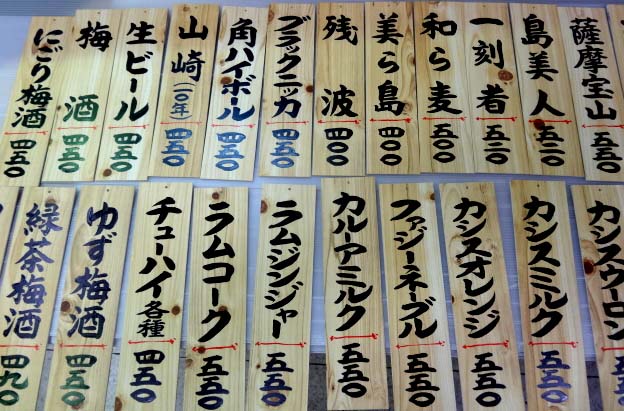 薩摩宝山 五五〇
島美人 五二〇
一刻者 五二〇
和ら麦 五〇〇
美ら島 四〇〇
残波 四〇〇
ブラックニッカ 四五〇
角ハイボール 四五〇
山崎(一〇年) 四五〇
生ビール 四五〇
梅酒 四五〇
にごり梅酒 四五〇
カシスウーロン 五五〇
カシスミルク 五五〇
カシスオレンジ 五五〇
ファジーネーブル 五五〇
カルーアミルク 五五〇
ラムジンジャー 五五〇
ラムコーク 五五〇
チューハイ各種 四五〇
ゆず梅酒 四五〇
緑茶梅酒 四九〇